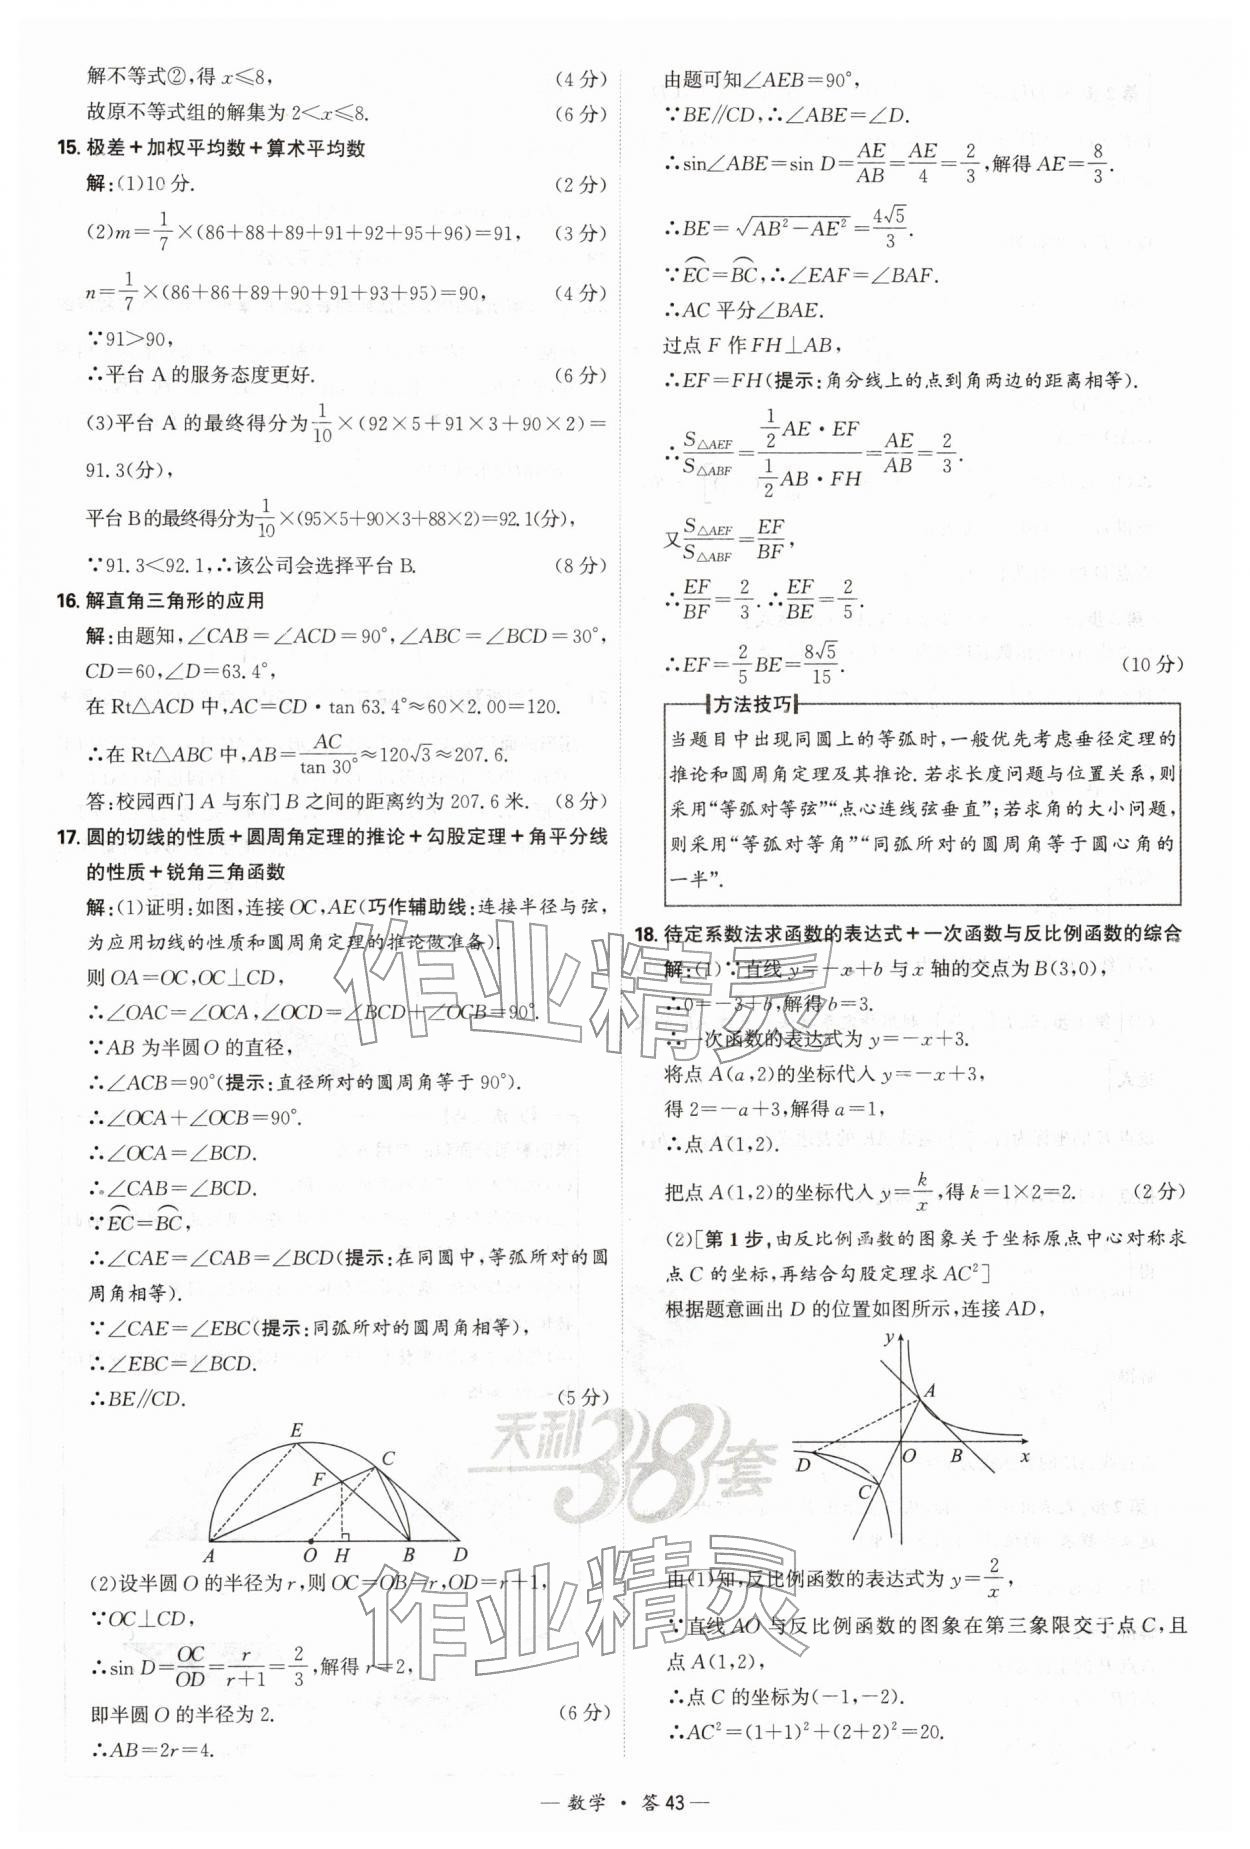 解不等式②,得 x≤8, (4分)
故原不等式组的解集为 2<x≤8. (6分)
15. 极差+加权平均数+算术平均数
解:(1)10 分. (2分)
(2)m=1/7×(86+88+89+91+92+95+96)=91, (3分)
n=1/7×(86+86+89+90+91+93+95)=90, (4分)
∵91>90,
∴平台 A 的服务态度更好. (6分)
(3)平台 A 的最终得分为1/10×(92×5+91×3+90×2)=
91.3(分),
平台B的最终得分为1/10×(95×5+90×3+88×2)=92.1(分),
∵91.3<92.1,∴该公司会选择平台 B. (8分)
16. 解直角三角形的应用
解:由题知,∠CAB=∠ACD=90°,∠ABC=∠BCD=30°,
CD=60,∠D=63.4°,
在 Rt△ACD 中,AC=CD·tan 63.4°≈60×2.00=120.
∴在 Rt△ABC 中,AB=AC/tan 30°≈120√3≈207.6.
答:校园西门 A 与东门 B 之间的距离约为 207.6 米. (8分)
17. 圆的切线的性质+圆周角定理的推论+勾股定理+角平分线
的性质+锐角三角函数
解:(1)证明:如图,连接 OC,AE(巧作辅助线:连接半径与弦,
为应用切线的性质和圆周角定理的推论做准备).
则 OA=OC,OC⊥CD,
∴∠OAC=∠OCA,∠OCD=∠BCD+∠OCB=90°.
∵AB 为半圆 O 的直径,
∴∠ACB=90°(提示:直径所对的圆周角等于 90°).
∴∠OCA+∠OCB=90°.
∴∠OCA=∠BCD.
∴∠CAB=∠BCD.
∵⌒EC=⌒BC,
∴∠CAE=∠CAB=∠BCD(提示:在同圆中,等弧所对的圆
周角相等).
∵∠CAE=∠EBC(提示:同弧所对的圆周角相等),
∴∠EBC=∠BCD.
∴BE∥CD. (5分)
E
C
F
A O H B D
(2)设半圆 O 的半径为 r,则 OC=OB=r,OD=r+1,
∵OC⊥CD,
∴sin D=OC/OD=r/(r+1)=2/3,解得 r=2,
即半圆 O 的半径为 2. (6分)
∴AB=2r=4.
由题可知∠AEB=90°,
∵BE∥CD,∴∠ABE=∠D.
∴sin∠ABE=sin D=AE/AB=AE/4=2/3,解得 AE=8/3.
∴BE=√(AB²−AE²)=4√5/3.
∵⌒EC=⌒BC,∴∠EAF=∠BAF.
∴AC 平分∠BAE.
过点 F 作 FH⊥AB,
∴EF=FH(提示:角分线上的点到角两边的距离相等).
∴S△AEF/S△ABF=(1/2 AE·EF)/(1/2 AB·FH)=AE/AB=2/3.
又S△AEF/S△ABF=EF/BF,
∴EF/BF=2/3.∴EF/BE=2/5.
∴EF=2/5 BE=8√5/15. (10分)
方法技巧
当题目中出现同圆上的等弧时,一般优先考虑垂径定理的
推论和圆周角定理及其推论.若求长度问题与位置关系,则
采用“等弧对等弦”“点心连线弦垂直”;若求角的大小问题,
则采用“等弧对等角”“同弧所对的圆周角等于圆心角的
一半”.
18. 待定系数法求函数的表达式+一次函数与反比例函数的综合
解:(1)∵直线 y=−x+b 与 x 轴的交点为 B(3,0),
∴0=−3+b,解得 b=3.
∴一次函数的表达式为 y=−x+3.
将点 A(a,2)的坐标代入 y=−x+3,
得 2=−a+3,解得 a=1,
∴点 A(1,2).
把点 A(1,2)的坐标代入 y=k/x,得 k=1×2=2. (2分)
(2)[第1步,由反比例函数的图象关于坐标原点中心对称求
点 C 的坐标,再结合勾股定理求 AC²]
根据题意画出 D 的位置如图所示,连接 AD,
y
A
D O B x
C
由(1)知,反比例函数的表达式为 y=2/x,
∵直线 AO 与反比例函数的图象在第三象限交于点 C,且
点 A(1,2),
∴点 C 的坐标为(−1,−2).
∴AC²=(1+1)²+(2+2)²=20.
作业精灵
天利38套
作业精灵
— 数学 · 答 43 —